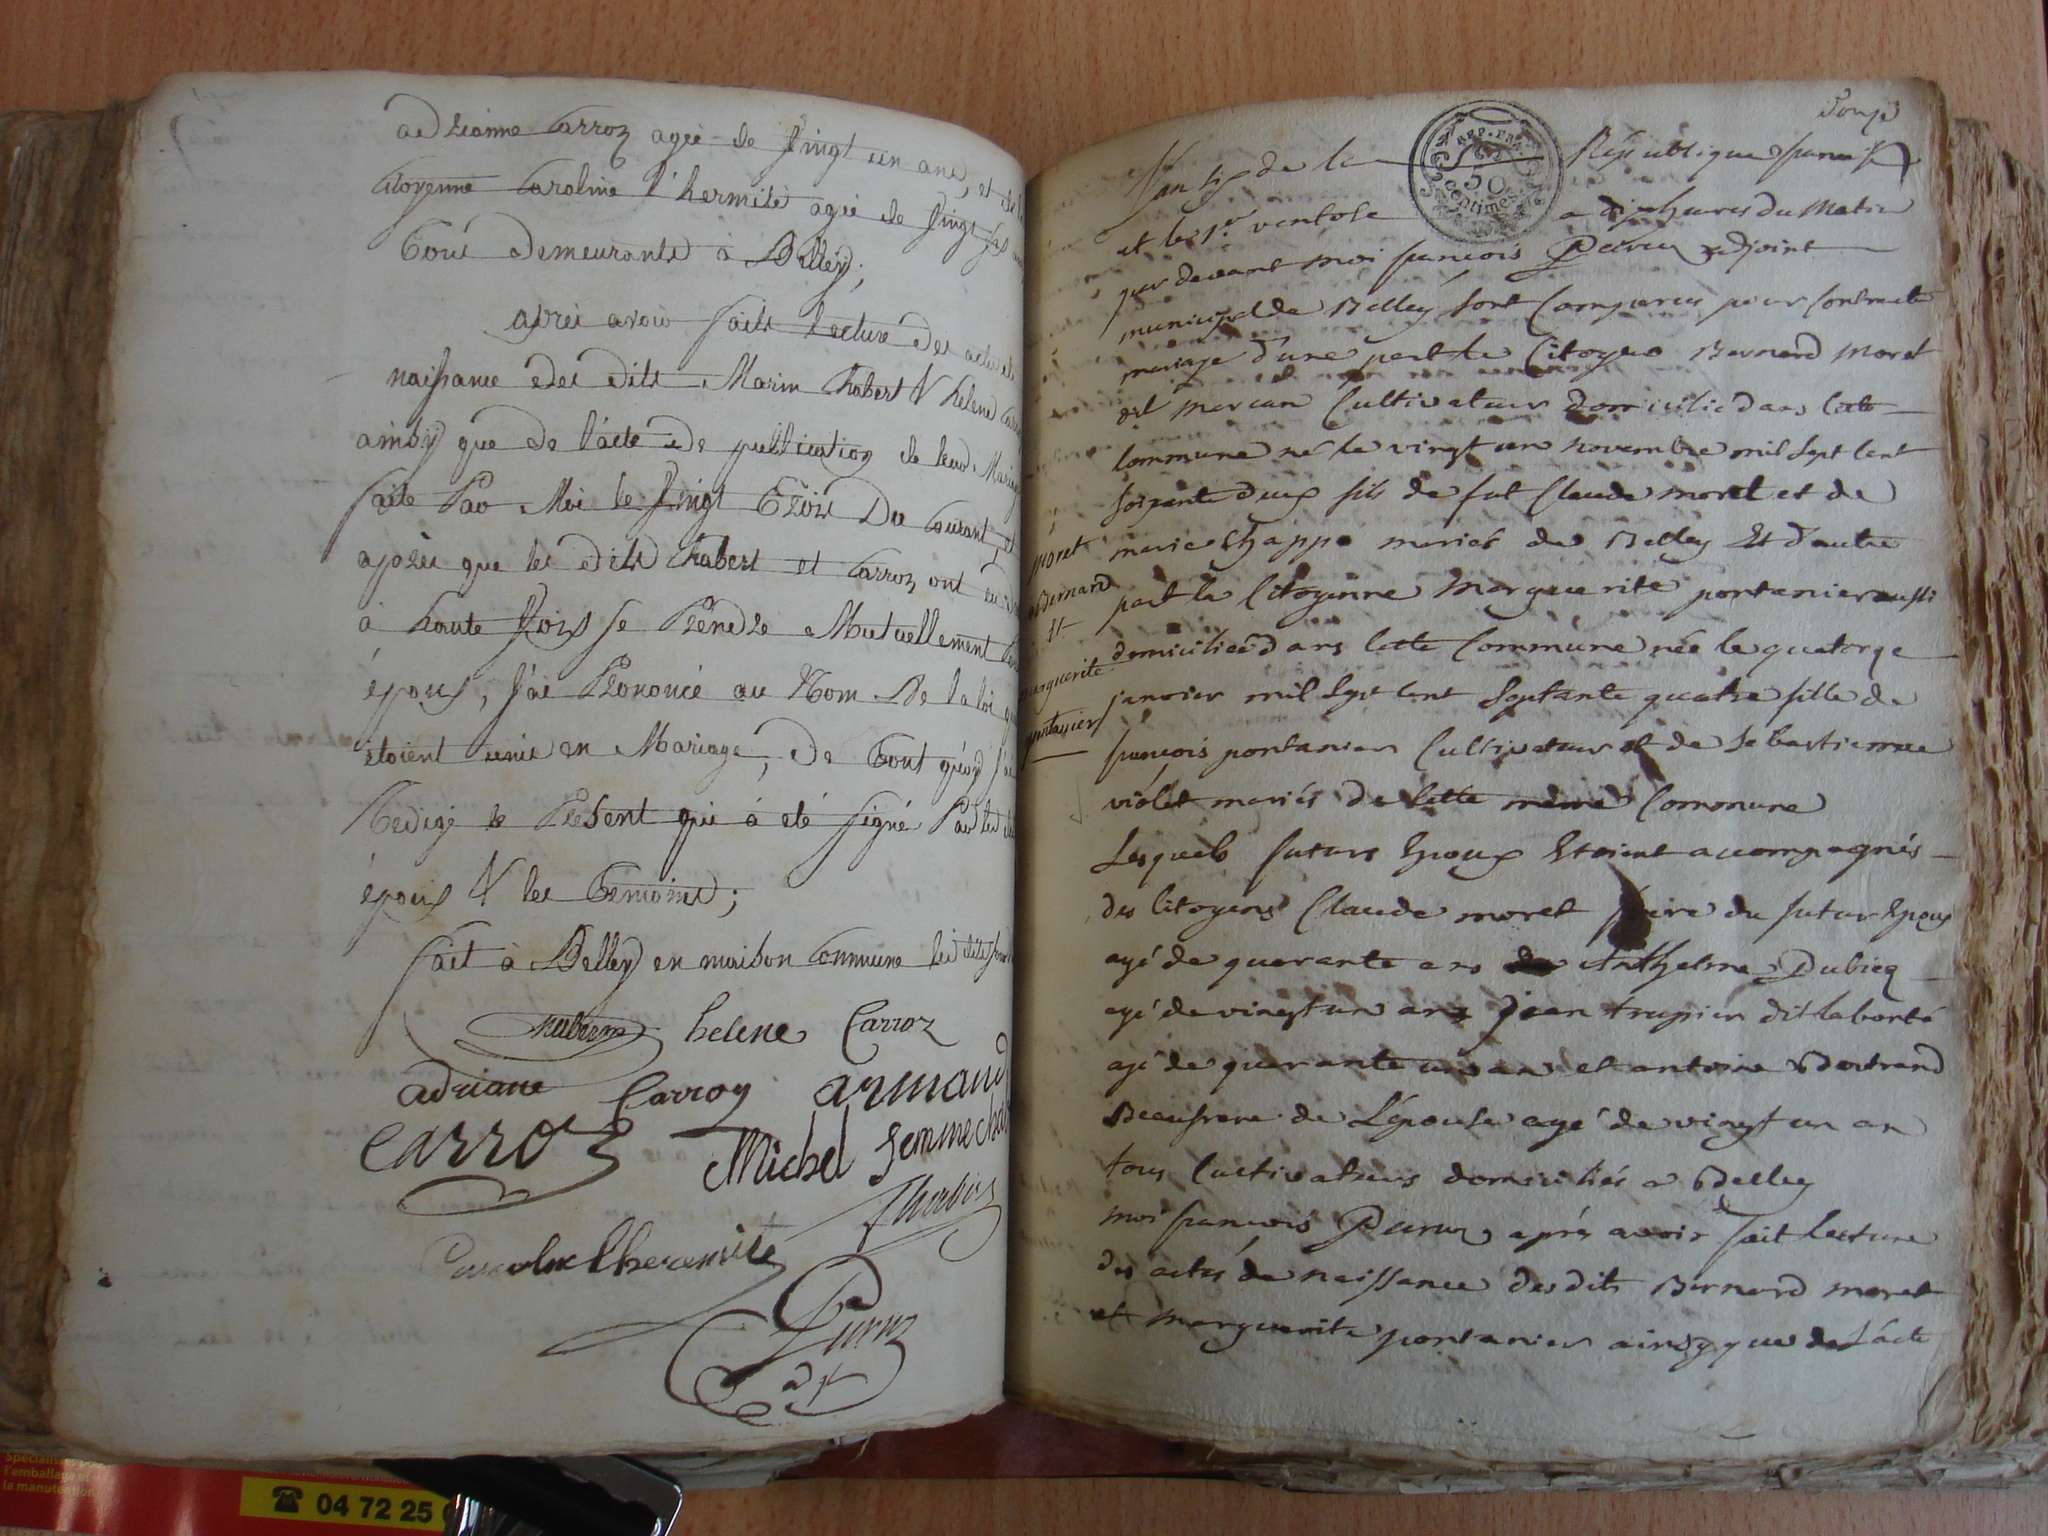 adrianne Carroz ageé de Vingt un ans, et de la
Citoyenne Caroline l'hermite ageé de Vingt six
tous demeurants à Belley;
après avoir fait lecture des actes de
naissance des dits Marin Chabert & helene
ainsy que de l'acte de publication de leur Mariage
faite Par Moi le Vingt trois Du Courant, et
après que les dits Chabert et Carroz ont
à haute Voix se Prendre Mutuellement
époux, J'ai Prononcé au Nom De la loi que
étoient unis en Mariage, De tout quoy J'ai
Redigé le Présent qui à été signé Par les
époux & les temoins;
fait à Belley en maison Commune les dits
helene Carroz
adriane Carroz armand
Carroz Michel femme
Caroline lhermite
Peruz
adjt
Douze
REP. FRA.
50
centimes
L'an six de la République française
et le 1er ventose a dix heures du Matin
par devant moi françois Peruz adjoint
municipal de Belley sont Comparus pour Contracter
mariage d'une part le Citoyen Bernard Moret
dit Cultivateur domicilié dans Cette
Commune né le vingt un novembre mil sept Cent
soixante deux fils de fut Claude moret et de
marie Chappe mariés de Belley Et d'autre
part la Citoyenne Marguerite pontanier aussi
domiciliée dans Cette Commune née le quatorze
janvier mil sept Cent septante quatre fille de
françois pontanier Cultivateur et de Sebastienne
violet mariés de Cette même Commune
Lesquels futurs Epoux Etoient accompagnés
des Citoyens Claude moret frère du futur Epoux
agé de quarante ans Anthelme Dubieq
agé de vingt un ans jean trupier dit laborté
agé de quarante un an et antoine Bertrand
Beaufrere de L'épouse agé de vingt un an
tous Cultivateurs domiciliés a Belley
moi françois Peruz après avoir fait lecture
des actes de naissance des dits Bernard moret
et marguerite pontanier ainsy que de l'acte
Moret
Bernard
Et
marguerite
pontanier
Spécialiste
l'emballage et
la manutention
☎ 04 72 25